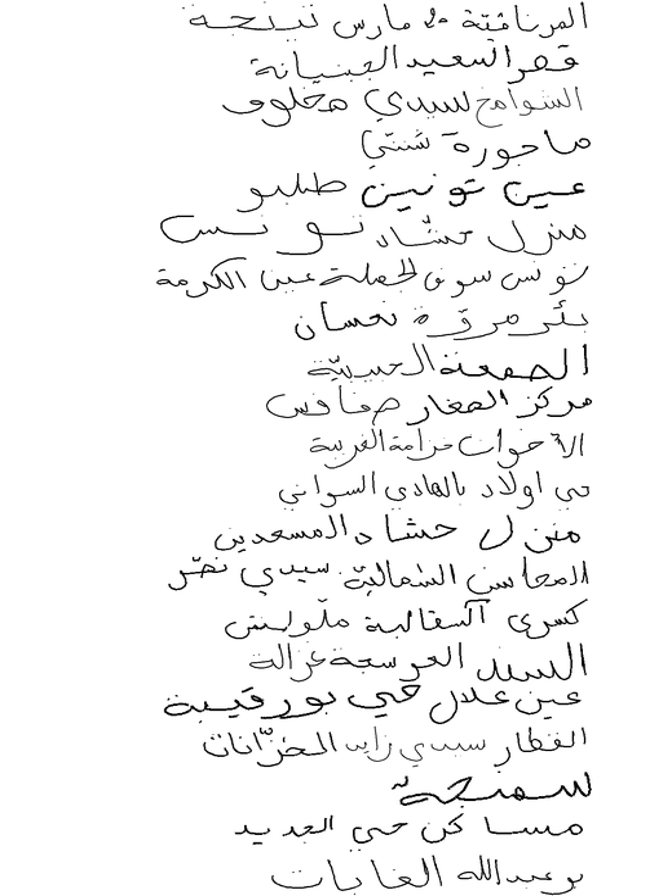 المرناقية 20 مارس تينجة
قصر السعيد الجبنيانة
الشوامخ سيدي مخلوف
ماجورة شنني
عين تونين طلبو
منزل حشاد تونس
تونس سوق الجملة عين الكرمة
بئر مروة نعسان
الصمعة الحبيبيّة
مركز العقار صفاقس
الأخوات حزامة الغربية
حي اولاد بالهادي السواني
منزل حشاد المسعدين
المحاسن الشماليّة سيدي نصر
كسرى السقالبة ملّولش
السند العوسجة غزالة
عين علال حي بورقيبة
القطار سيدي زايد الخزّانات
سمنجة
مساكن حي الجديد
بوعبدالله الغابات